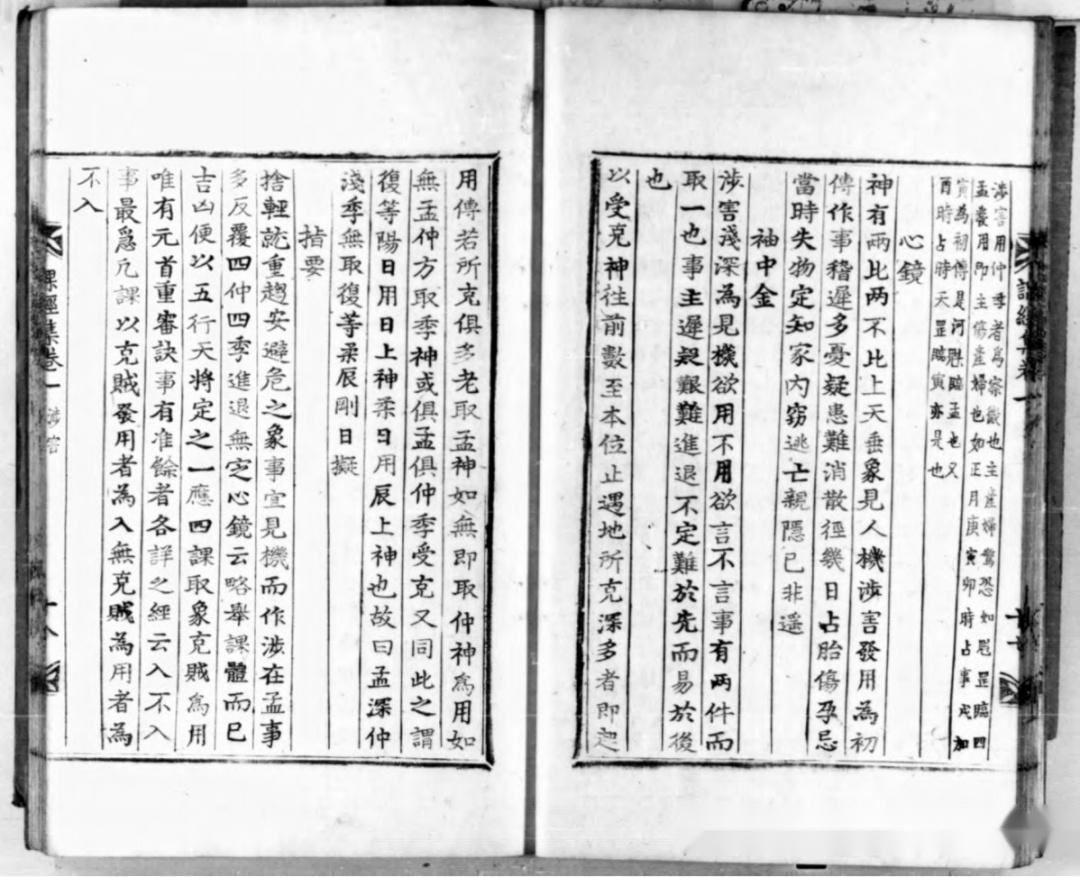 涉害用仲季者為察微也主產婦驚恐如罡臨四
孟發用即主傷產婦也如正月庚寅卯時占事戌加
寅為初傳是河魁臨孟也又
酉時占時天罡臨寅亦是也
心鏡
神有兩比兩不比上天垂象見人機涉害發用為初
傳作事稽遲多憂疑患難消散徑幾日占胎傷孕忌
當時失物定知家內竊逃亡親隱已非遥
袖中金
涉害淺深為見機欲用不用欲言不言事有兩件而
取一也事主遲疑艱難進退不定難於先而易於後
也
以受克神徃前數至本位止遇地所克深多者即起
用傳若所克俱多老取孟神如無即取仲神為用如
無孟仲方取季神或俱孟俱仲季受克又同此之謂
復等陽日用日上神柔日用辰上神也故曰孟深仲
淺季無取復等柔辰剛日擬
指要
捨輕就重趨安避危之象事宜見機而作涉在孟事
多反覆四仲四季進退無定心鏡云略舉課體而已
吉凶便以五行天將定之一應四課取象克賊為用
唯有元首重審訣事有准餘者各詳之經云入不入
事最急凡課以克賊發用者為入無克賊為用者為
不入
課經集卷一 涉害
十八